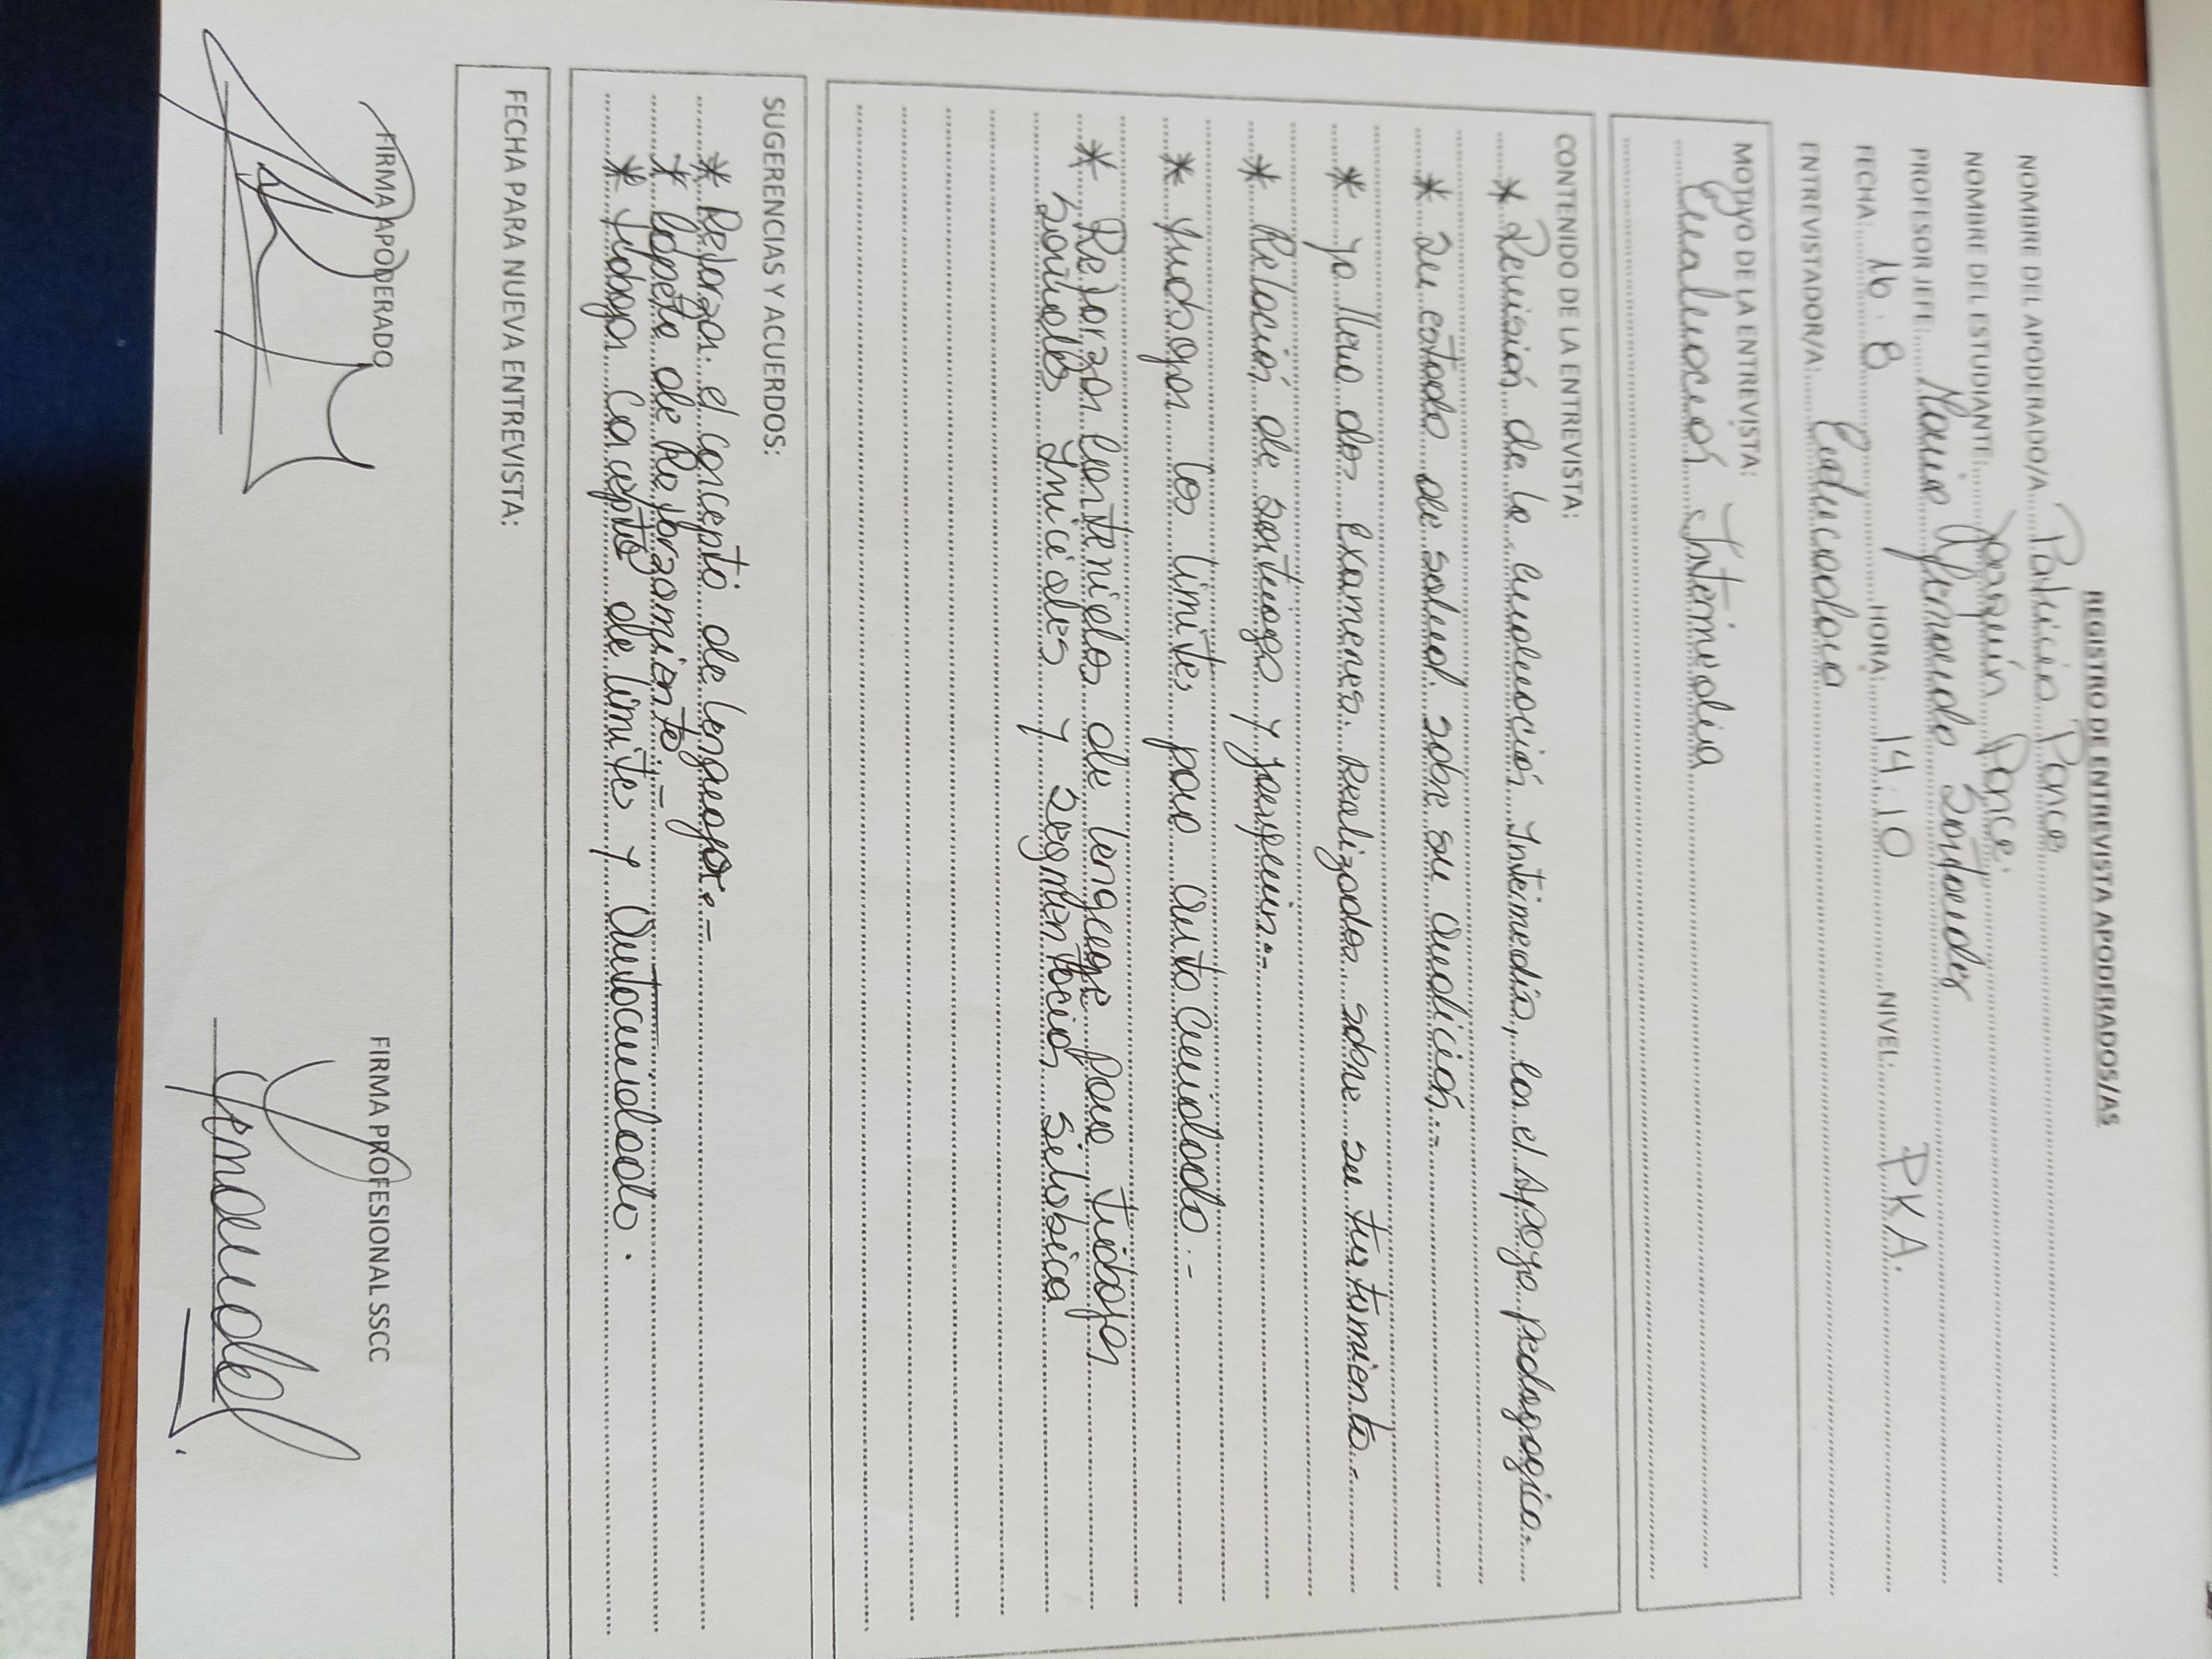 REGISTRO DE ENTREVISTA APODERADOS/AS
NOMBRE DEL APODERADO/A: Patricio Ponce
NOMBRE DEL ESTUDIANTE: Joaquín Ponce
PROFESOR JEFE: María Fernanda Santander
FECHA: 16.8 HORA: 14:10 NIVEL: PKA.
ENTREVISTADOR/A: Educadora
MOTIVO DE LA ENTREVISTA:
Evaluación Intermedia
CONTENIDO DE LA ENTREVISTA:
* Revisión de la evaluación Intermedia, con el Apoyo pedagógico.
* Su estado de salud sobre su audición.-
* Ya lleva dos exámenes realizados sobre su tratamiento.-
* Relación de santiago y joaquin.-
* Trabajar los limites para autocuidado.-
* Reforzar contenidos de lenguaje para trabajar
sonidos Iniciales y segmentación silábica
SUGERENCIAS Y ACUERDOS:
* Reforzar el concepto de lenguaje.-
* Carpeta de Reforzamiento.-
* Trabajar Concepto de limites y Autocuidado.
FECHA PARA NUEVA ENTREVISTA:
FIRMA APODERADO FIRMA PROFESIONAL SSCC